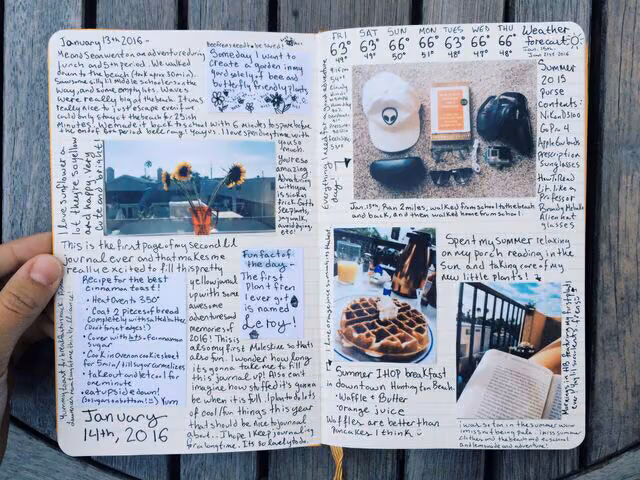 January 13th 2016 -
Me and Sean went on an adventure during
lunch and 5th period. We walked
down to the beach (took approx 30 min).
Saw some silly lil middle schoolers on the
way, and some empty lots. Waves
were really big at the beach. It was
really nice to just escape even if we
could only stay at the beach for 25ish
minutes. We made it back to school with 6 minutes to spare before
the end of 5th period bell rang! Yay us. I love spending time with
you so
much.
You're so
amazing.
Adventuring
with you
is sick as
frick. Got to
see plants,
jaywalk,
avoid dying,
etc!
Bee friends need to be saved!
Someday I want to
create a garden in my
yard solely of bee and
butterfly friendly plants
I love sunflower a
lot they're so yellow
and happy. Very
cute and bright!
This is the first page of my second lil
journal ever and that makes me
really excited to fill this pretty
yellow journal
up with some
awesome
adventures and
memories of
2016! This is
also my first Moleskine so that's
also fun. I wonder how long
it's gonna take me to fill
this journal up! Also can't
imagine how stuffed it's gonna
be when it is full. I plan to do lots
of cool/fun things this year
that should be nice to journal
about. I hope I keep journaling
for a long time. Its so lovely to do.
Recipe for the best
cinnamon toast!
• Heat Oven to 350°
• Coat 2 pieces of bread
completely with salted butter
(Don't forget edges!)
• Cover with lots of cinnamon
sugar
• Cook in oven on cookie sheet
for 5 min/till sugar carmelizes
• take out and let cool for
one minute
• eat upside down!
January
14th, 2016
Fun fact of
the day -
The first
plant fren
I ever got
is named
Leroy!
FRI SAT SUN MON TUES WED THU
63° 63° 66° 66° 63° 66° 66°
49° 49° 50° 51° 48° 47° 48°
Weather
forecast
Jan. 15th -
Jan 21st 2016
Summer
2015
purse
contents:
Nikon D3100
GoPro 4
Apple Earbuds
prescription
sunglasses
How To Read
Lit. Like a
Professor
Alien hat
glasses
Jan. 15th, Ran 2 miles, walked from school to the beach
and back, and then walked home from school!
Summer IHOP breakfast
in downtown Huntington Beach
• Waffle & Butter
• orange juice
Waffles are better than
pancakes I think
Spent my summer relaxing
on my porch reading in the
sun and taking care of my
new little plants!
i was so tan in the summer wow
i miss not being pale. i miss summer
clothes and the beach and no school
and lemonade and adventure!